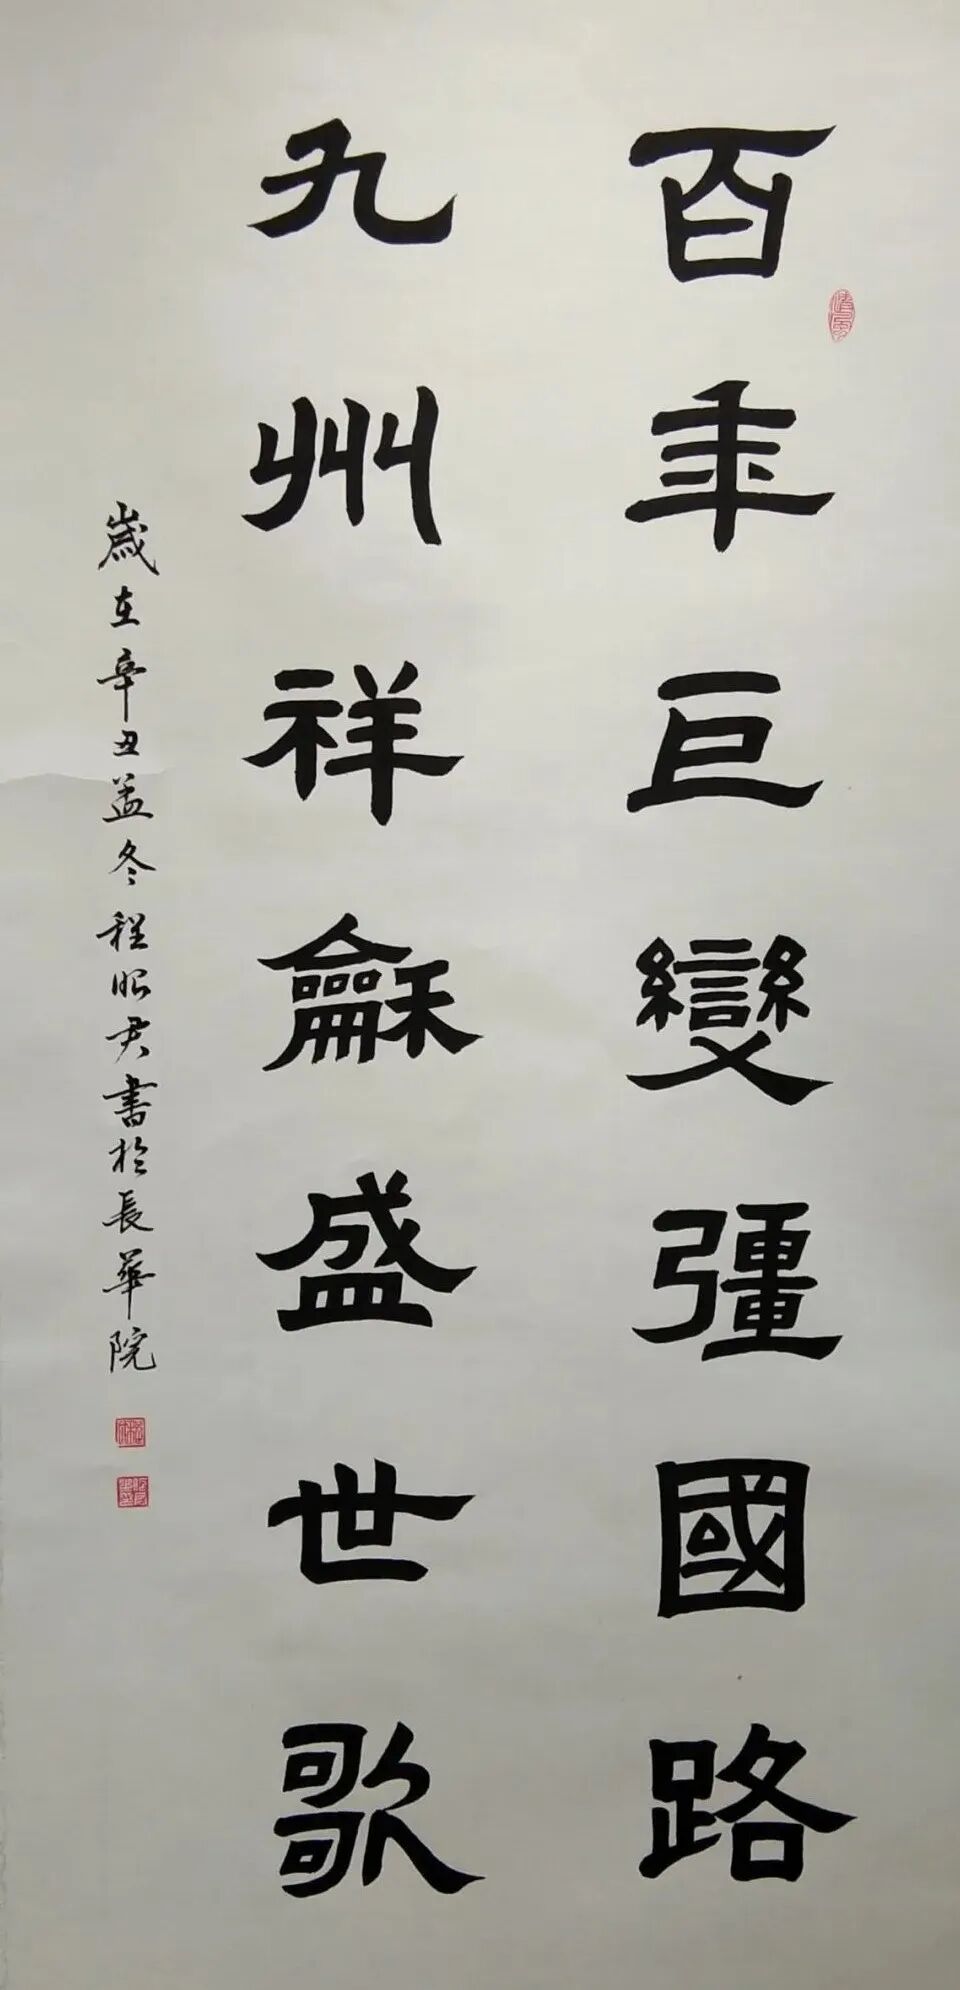 百年巨變彊國路
九州祥龢盛世歌
歲在辛丑孟冬程昭尹書於長華院